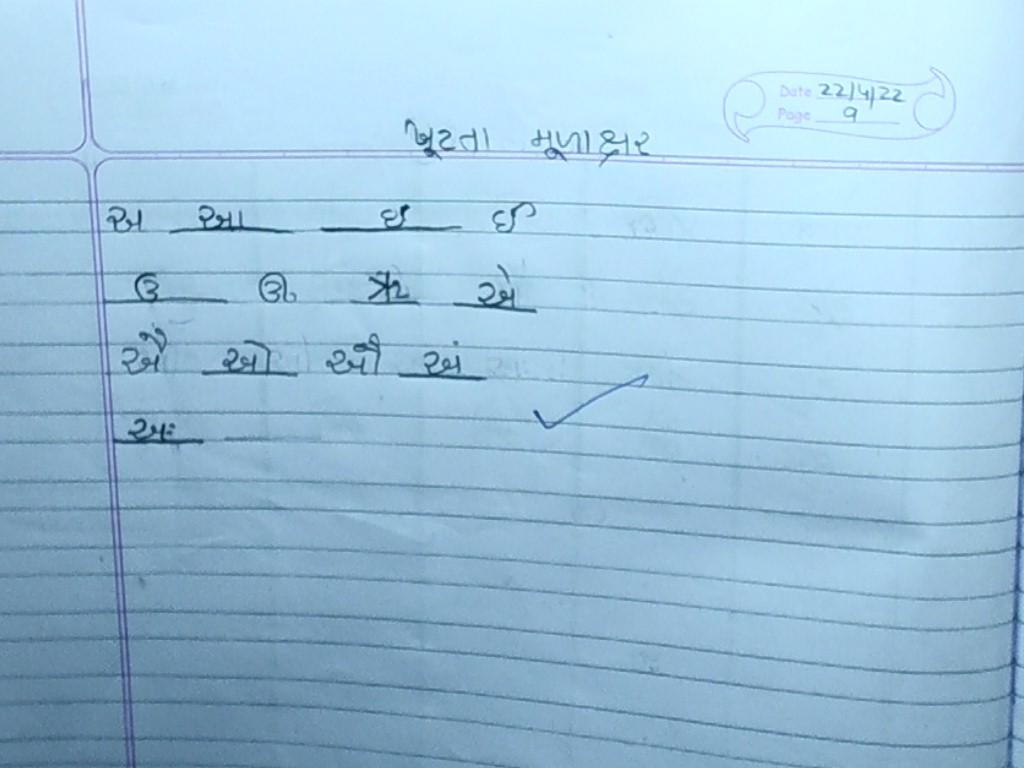 Date 22/4/22
Page 9
ખૂટતા મૂળાક્ષર
અ આ ઇ ઈ
ઉ ઊ ઋ એ
ઐ ઓ ઔ અં
અઃ